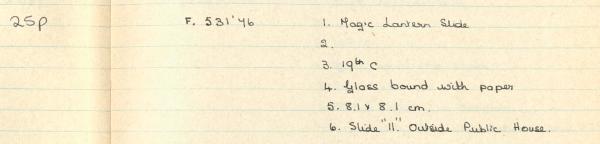 25p F. 531'76 1. Magic Lantern Slide
2.
3. 19th C
4. Glass bound with paper
5. 8.1 x 8.1 cm.
6. Slide "11." Outside Public House.